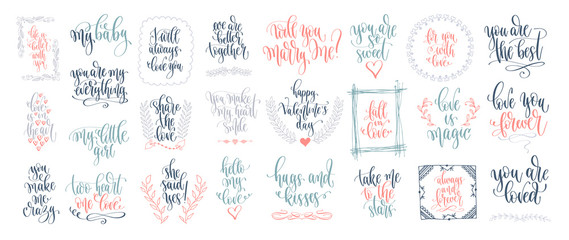 life is better with you
my baby
I will
always
love you
we are
better
together
will you
marry me?
you are
so
sweet
for you
with
love
you are
the best
you are my
everything
love is
in
the air
my little
girl
share
the
love
you make
my heart
smile
happy
Valentine's
day
fall
in
love
love
is
magic
love you
forever
you
make
me
crazy
two heart
one love
she
said
yes!
hello
my
love
hugs and
kisses
take me
to
the
stars
always
and
forever
you are
loved